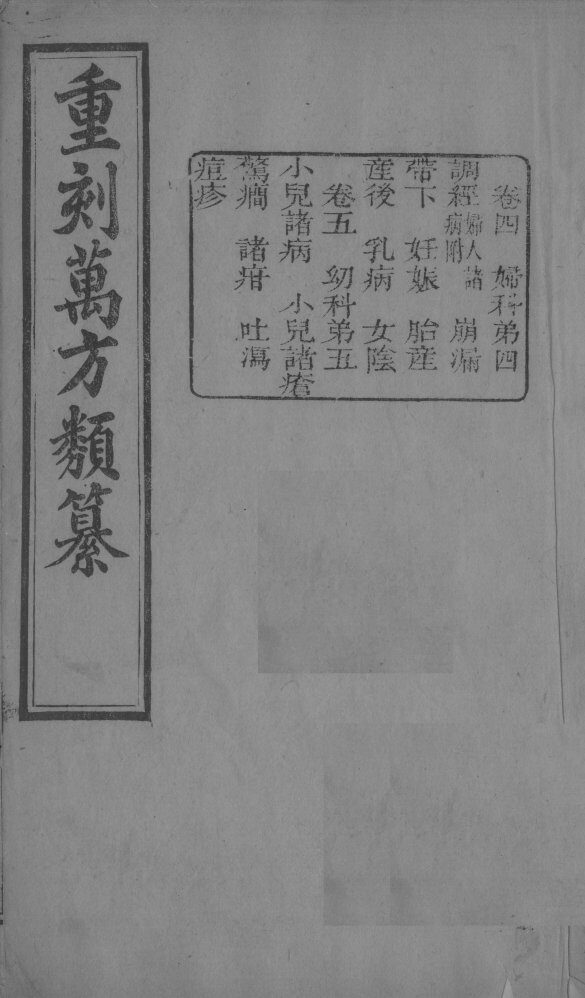 重刻萬方類纂
卷四　婦科弟四
調經婦人諸病附　崩漏
帶下　妊娠　胎産
産後　乳病　女陰
卷五　幼科弟五
小兒諸病　小兒諸瘡
驚癎　諸疳　吐瀉
痘疹